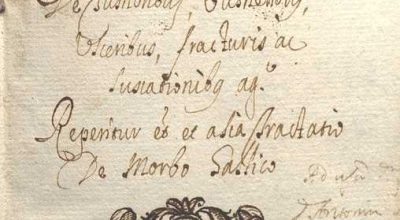 De Tumoribus, Vulneribq,
Ulceribus, fracturis ac
luxationibq ag.
Reperitur et et alia tractatio
De Morbo Gallico
Ad usū